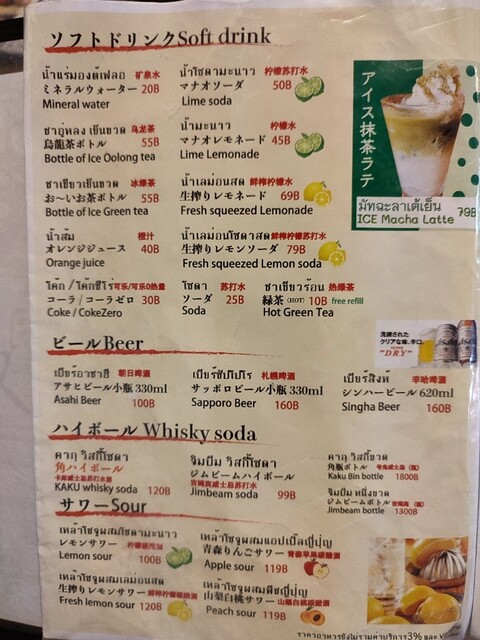 ソフトドリンクSoft drink
น้ำแร่มองต์เฟลอ 矿泉水
ミネラルウォーター 20B
Mineral water
น้ำโซดามะนาว 柠檬苏打水
マナオソーダ 50B
Lime soda
ชาอู่หลง เย็นขวด 乌龙茶
烏龍茶ボトル 55B
Bottle of Ice Oolong tea
น้ำมะนาว 柠檬水
マナオレモネード 45B
Lime Lemonade
ชาเขียวเย็นขวด 冰绿茶
お〜いお茶ボトル 55B
Bottle of Ice Green tea
น้ำเลม่อนสด 鲜榨柠檬水
生搾りレモネード 69B
Fresh squeezed Lemonade
น้ำส้ม 橙汁
オレンジジュース 40B
Orange juice
น้ำเลม่อนโซดาสด鲜榨柠檬苏打水
生搾りレモンソーダ 79B
Fresh squeezed Lemon soda
โค้ก / โค้กซีโร่可乐/可乐0热量
コーラ / コーラゼロ 30B
Coke / CokeZero
โซดา 苏打水
ソーダ 25B
Soda
ชาเขียวร้อน 热绿茶
緑茶 (HOT) 10B free refill
Hot Green Tea
アイス抹茶ラテ
มัทฉะลาเต้เย็น 79B
ICE Macha Latte
ビールBeer
洗練された
クリアな味、辛口。
"DRY"
เบียร์อาซาฮี 朝日啤酒
アサヒビール小瓶 330ml
Asahi Beer 100B
เบียร์ซัปโปโร 札幌啤酒
サッポロビール小瓶 330ml
Sapporo Beer 160B
เบียร์สิงห์ 辛哈啤酒
シンハービール 620ml
Singha Beer 160B
ハイボール Whisky soda
คากุ วิสกี้โซดา
角ハイボール
KAKU whisky soda 120B
จิมบีม วิสกี้โซดา
ジムビームハイボール
Jimbeam soda 99B
คากุ วิสกี้ขวด
角瓶ボトル
Kaku Bin bottle 1800B
จิมบีม หนึ่งขวด
ジムビームボトル
Jimbeam bottle 1300B
サワーSour
เหล้าโซจูผสมโซดามะนาว
レモンサワー
Lemon sour 100B
เหล้าโซจูผสมแอปเปิ้ลญี่ปุ่น
青森りんごサワー
Apple sour 119B
เหล้าโซจูผสมเลม่อนสด
生搾りレモンサワー
Fresh lemon sour 120B
เหล้าโซจูผสมพีชญี่ปุ่น
山梨白桃サワー
Peach sour 119B
ราคาอาหารยังไม่รวมค่าบริการ3% และ